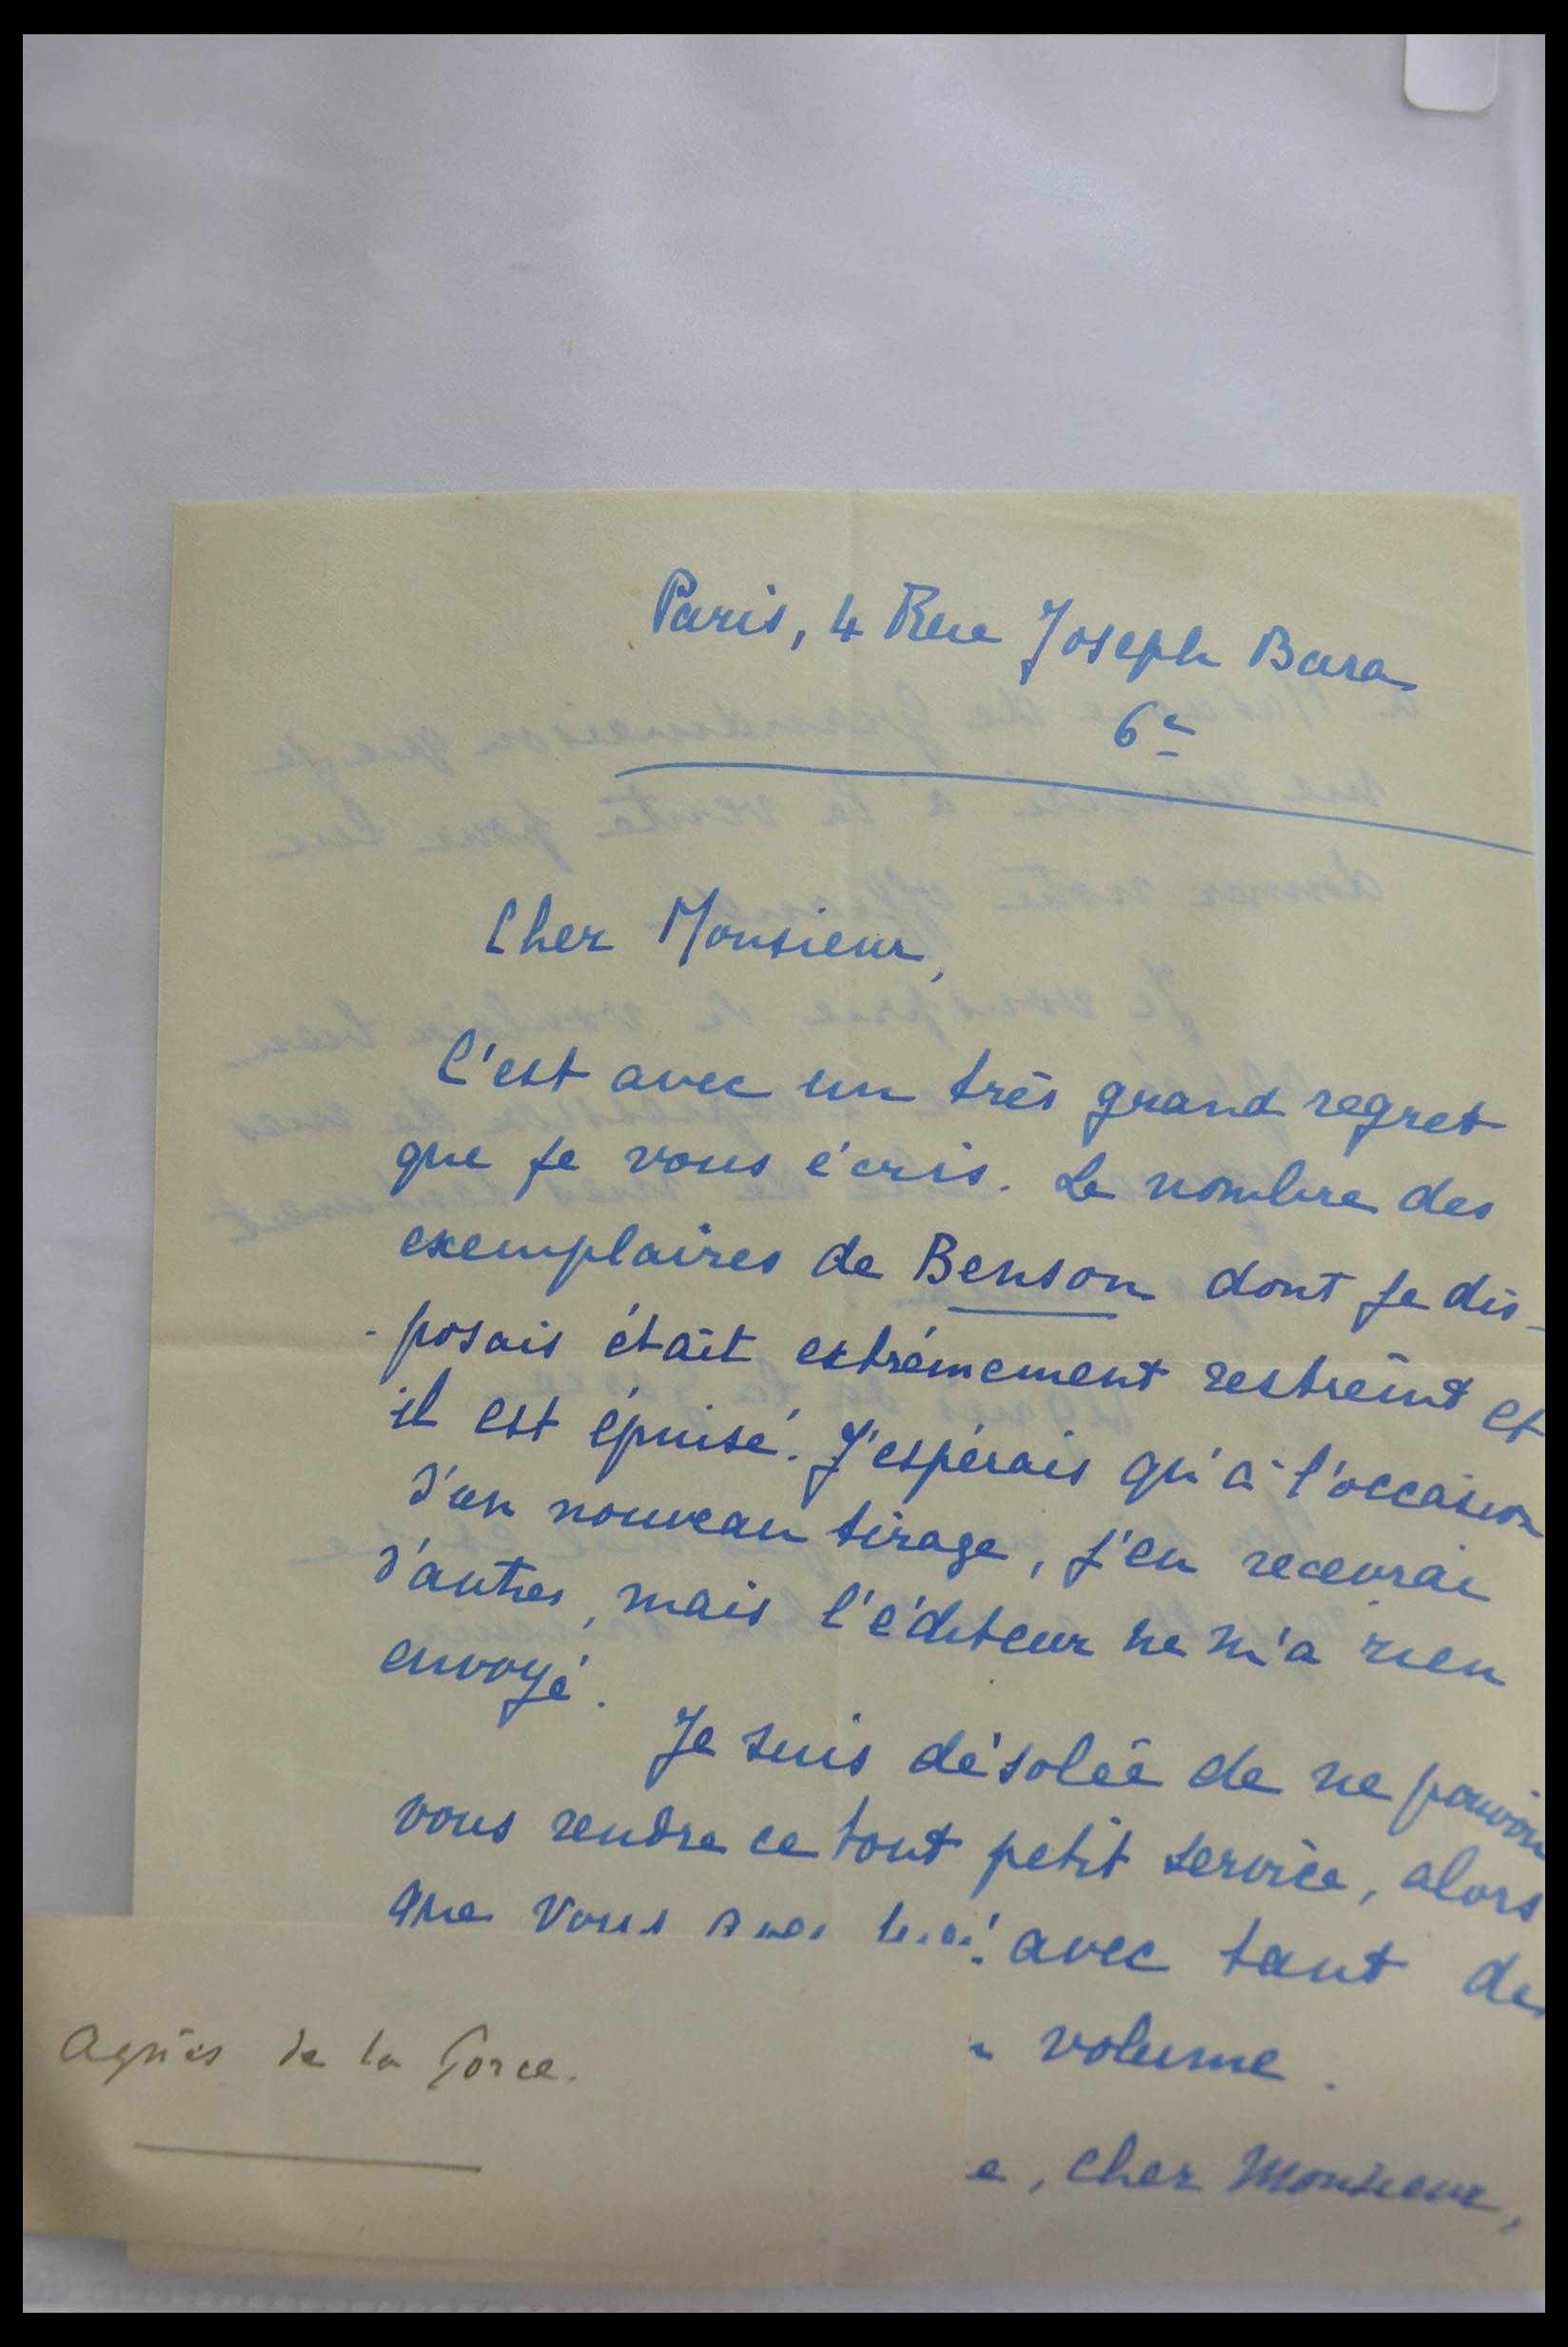 Paris, 4 Rue Joseph Bara
6e
Cher Monsieur,
C'est avec un très grand regret
que je vous écris. Le nombre des
exemplaires de Benson dont je dis-
-posais était extrêmement restreint et
il est épuisé. J'espérais qu'à l'occasion
d'un nouveau tirage, j'en recevrai
d'autres, mais l'éditeur ne m'a rien
envoyé.
Je suis désolée de ne pouvoir
vous rendre ce tout petit service, alors
que vous avec tant de
volume.
e, cher Monsieur,
Agnès de la Gorce.